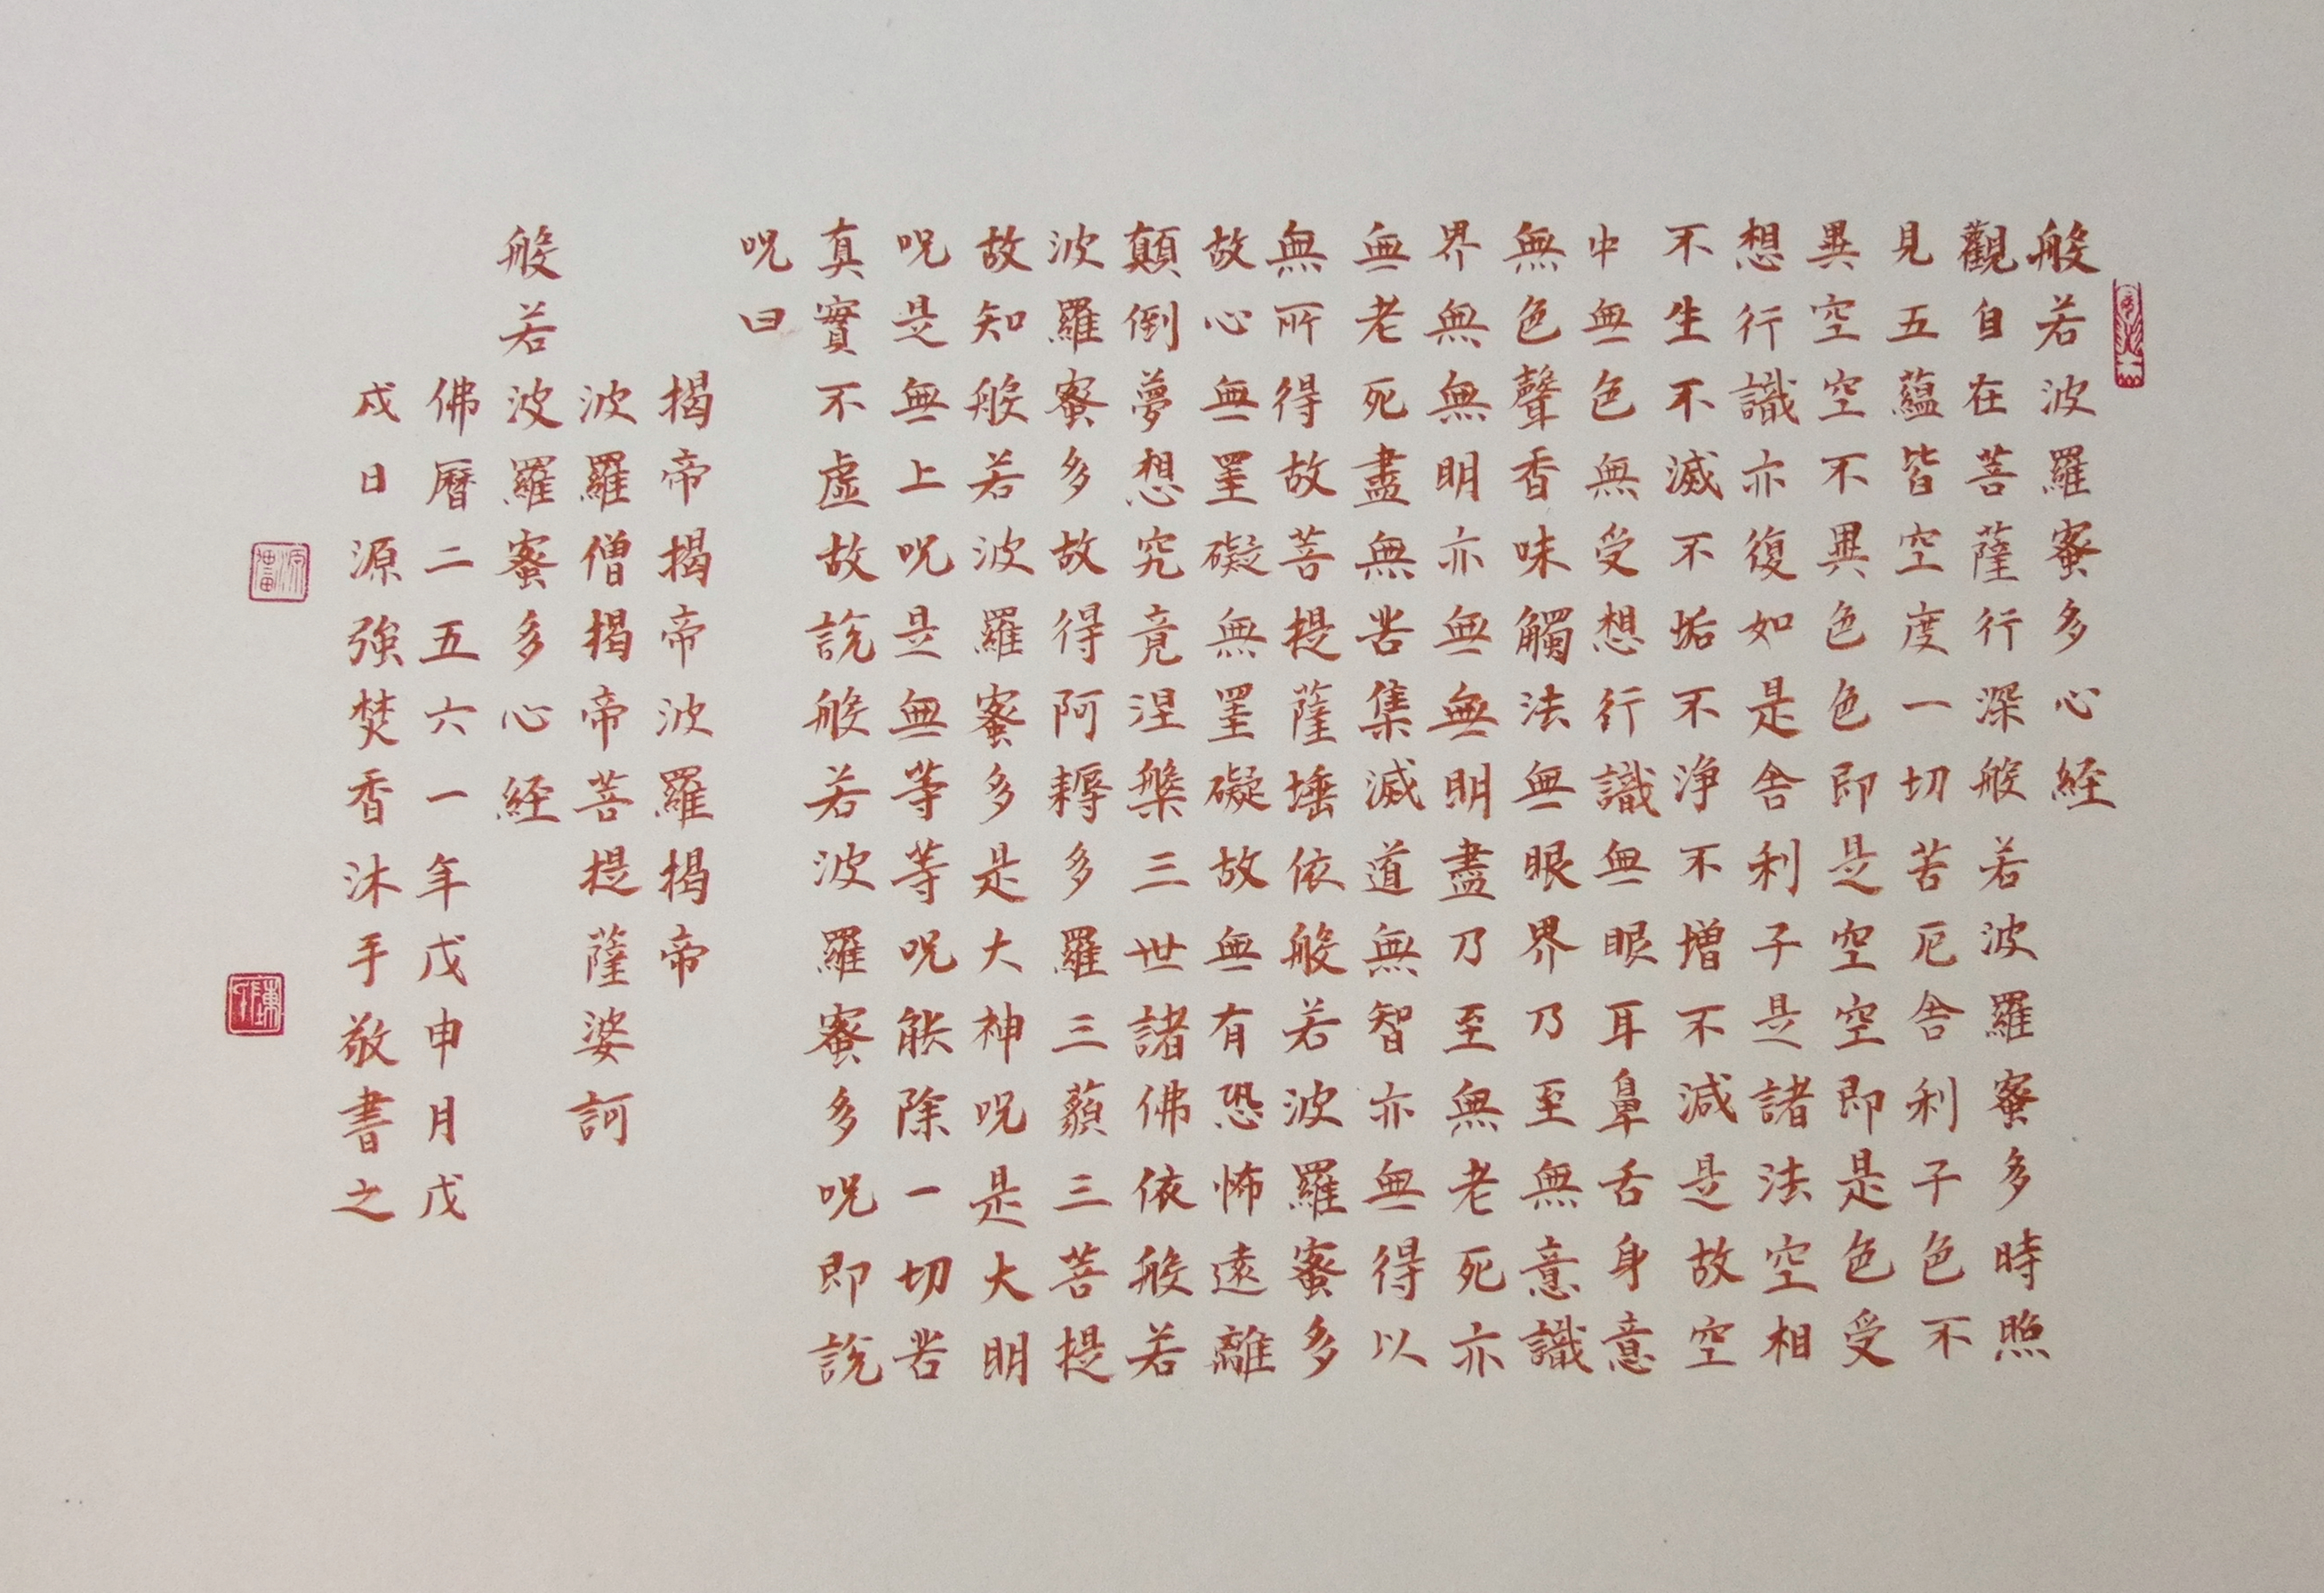 般若波羅蜜多心経
觀自在菩薩行深般若波羅蜜多時照
見五蘊皆空度一切苦厄舎利子色不
異空空不異色色即是空空即是色受
想行識亦復如是舎利子是諸法空相
不生不滅不垢不浄不增不減是故空
中無色無受想行識無眼耳鼻舌身意
無色聲香味觸法無眼界乃至無意識
界無無明亦無無明盡乃至無老死亦
無老死盡無苦集滅道無智亦無得以
無所得故菩提薩埵依般若波羅蜜多
故心無罣礙無罣礙故無有恐怖遠離
顛倒夢想究竟涅槃三世諸佛依般若
波羅蜜多故得阿耨多羅三藐三菩提
故知般若波羅蜜多是大神呪是大明
呪是無上呪是無等等呪能除一切苦
真實不虛故說般若波羅蜜多呪即說
呪曰
揭帝揭帝波羅揭帝
波羅僧揭帝菩提薩婆訶
般若波羅蜜多心経
佛曆二五六一年戊申月戊
戌日源強焚香沐手敬書之